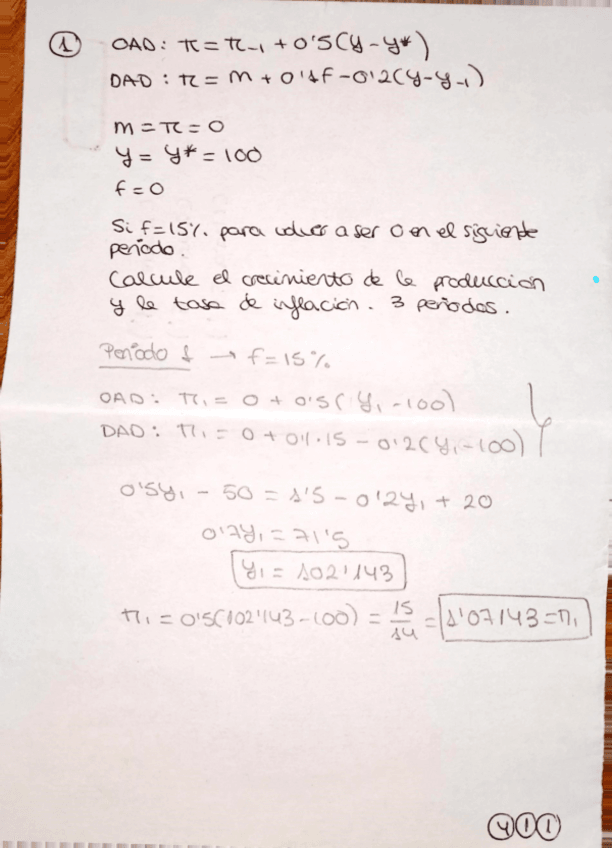 ① OAD: π = π₋₁ + 0'5(y - y*)
DAD: π = m + 0'1f - 0'2(y - y₋₁)
m = π = 0
y = y* = 100
f = 0
Si f = 15%. para volver a ser 0 en el siguiente
periodo.
Calcule el crecimiento de la producción
y la tasa de inflación. 3 periodos.
Periodo 1 → f = 15%
OAD: π₁ = 0 + 0'5(y₁ - 100)
DAD: π₁ = 0 + 0'1·15 - 0'2(y₁ - 100)
0'5y₁ - 50 = 1'5 - 0'2y₁ + 20
0'7y₁ = 71'5
y₁ = 102'143
π₁ = 0'5(102'143 - 100) = 15/14 = 1'07143 = π₁
④①①